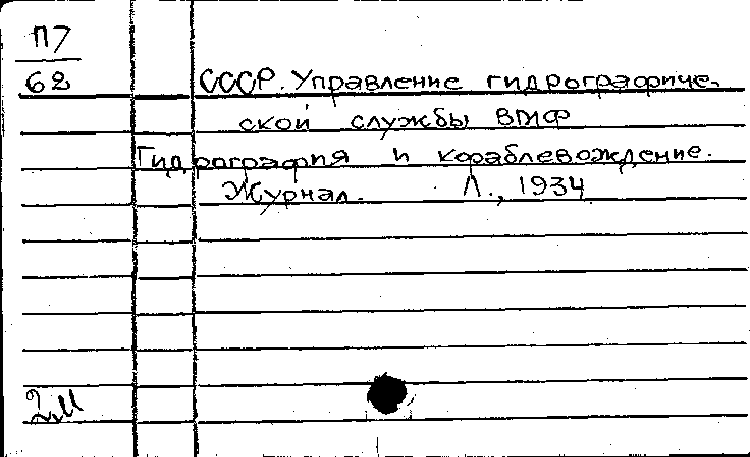 П7
62
СССР. Управление гидрографиче-
ской службы ВМФ
Гидрография и кораблевождение.
Журнал. Л., 1934